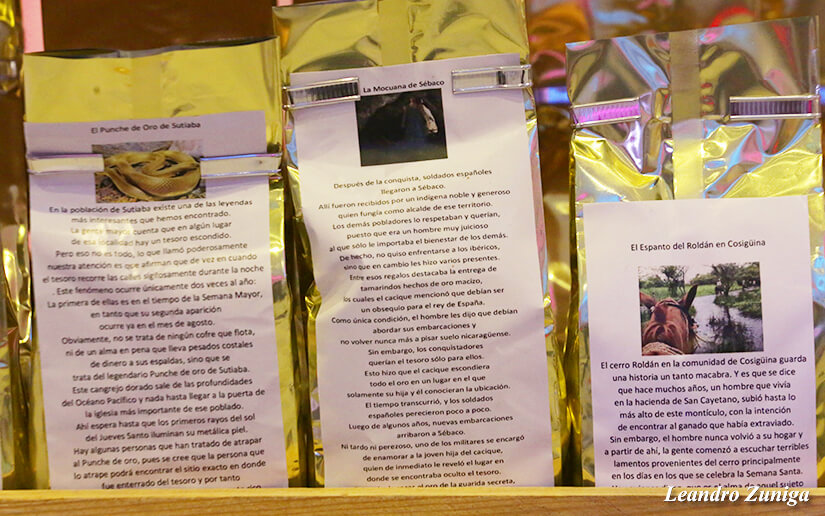 El Punche de Oro de Sutiaba
En la población de Sutiaba existe una de las leyendas
más interesantes que hemos encontrado.
La gente mayor cuenta que en algún lugar
de esa localidad hay un tesoro escondido.
Pero eso no es todo, lo que llamó poderosamente
nuestra atención es que afirman que de vez en cuando
el tesoro recorre las calles sigilosamente durante la noche
. Este fenómeno ocurre únicamente dos veces al año:
La primera de ellas es en el tiempo de la Semana Mayor,
en tanto que su segunda aparición
ocurre ya en el mes de agosto.
Obviamente, no se trata de ningún cofre que flota,
ni de un alma en pena que lleva pesados costales
de dinero a sus espaldas, sino que se
trata del legendario Punche de oro de Sutiaba.
Este cangrejo dorado sale de las profundidades
del Océano Pacífico y nada hasta llegar a la puerta de
la iglesia más importante de ese poblado.
Ahí espera hasta que los primeros rayos del sol
del Jueves Santo iluminan su metálica piel.
Hay algunas personas que han tratado de atrapar
al Punche de oro, pues se cree que la persona que
lo atrape podrá encontrar el sitio exacto en donde
fue enterrado del tesoro y por tanto
La Mocuana de Sébaco
Después de la conquista, soldados españoles
llegaron a Sébaco.
Allí fueron recibidos por un indígena noble y generoso
quien fungía como alcalde de ese territorio.
Los demás pobladores lo respetaban y querían,
puesto que era un hombre muy juicioso
al que sólo le importaba el bienestar de los demás.
De hecho, no quiso enfrentarse a los ibéricos,
sino que en cambio les hizo varios presentes.
Entre esos regalos destacaba la entrega de
tamarindos hechos de oro macizo,
los cuales el cacique mencionó que debían ser
un obsequio para el rey de España.
Como única condición, el hombre les dijo que debían
abordar sus embarcaciones y
no volver nunca más a pisar suelo nicaragüense.
Sin embargo, los conquistadores
querían el tesoro sólo para ellos.
Esto hizo que el cacique escondiera
todo el oro en un lugar en el que
solamente su hija y él conocieran la ubicación.
El tiempo transcurrió, y los soldados
españoles perecieron poco a poco.
Luego de algunos años, nuevas embarcaciones
arribaron a Sébaco.
Ni tardo ni perezoso, uno de los militares se encargó
de enamorar a la joven hija del cacique,
quien de inmediato le reveló el lugar en
donde se encontraba oculto el tesoro.
el oro de la guarida secreta,
El Espanto del Roldán en Cosigüina
El cerro Roldán en la comunidad de Cosigüina guarda
una historia un tanto macabra. Y es que se dice
que hace muchos años, un hombre que vivía
en la hacienda de San Cayetano, subió hasta lo
más alto de este montículo, con la intención
de encontrar al ganado que había extraviado.
Sin embargo, el hombre nunca volvió a su hogar y
a partir de ahí, la gente comenzó a escuchar terribles
lamentos provenientes del cerro principalmente
en los días en los que se celebra la Semana Santa.
Leandro Zuniga